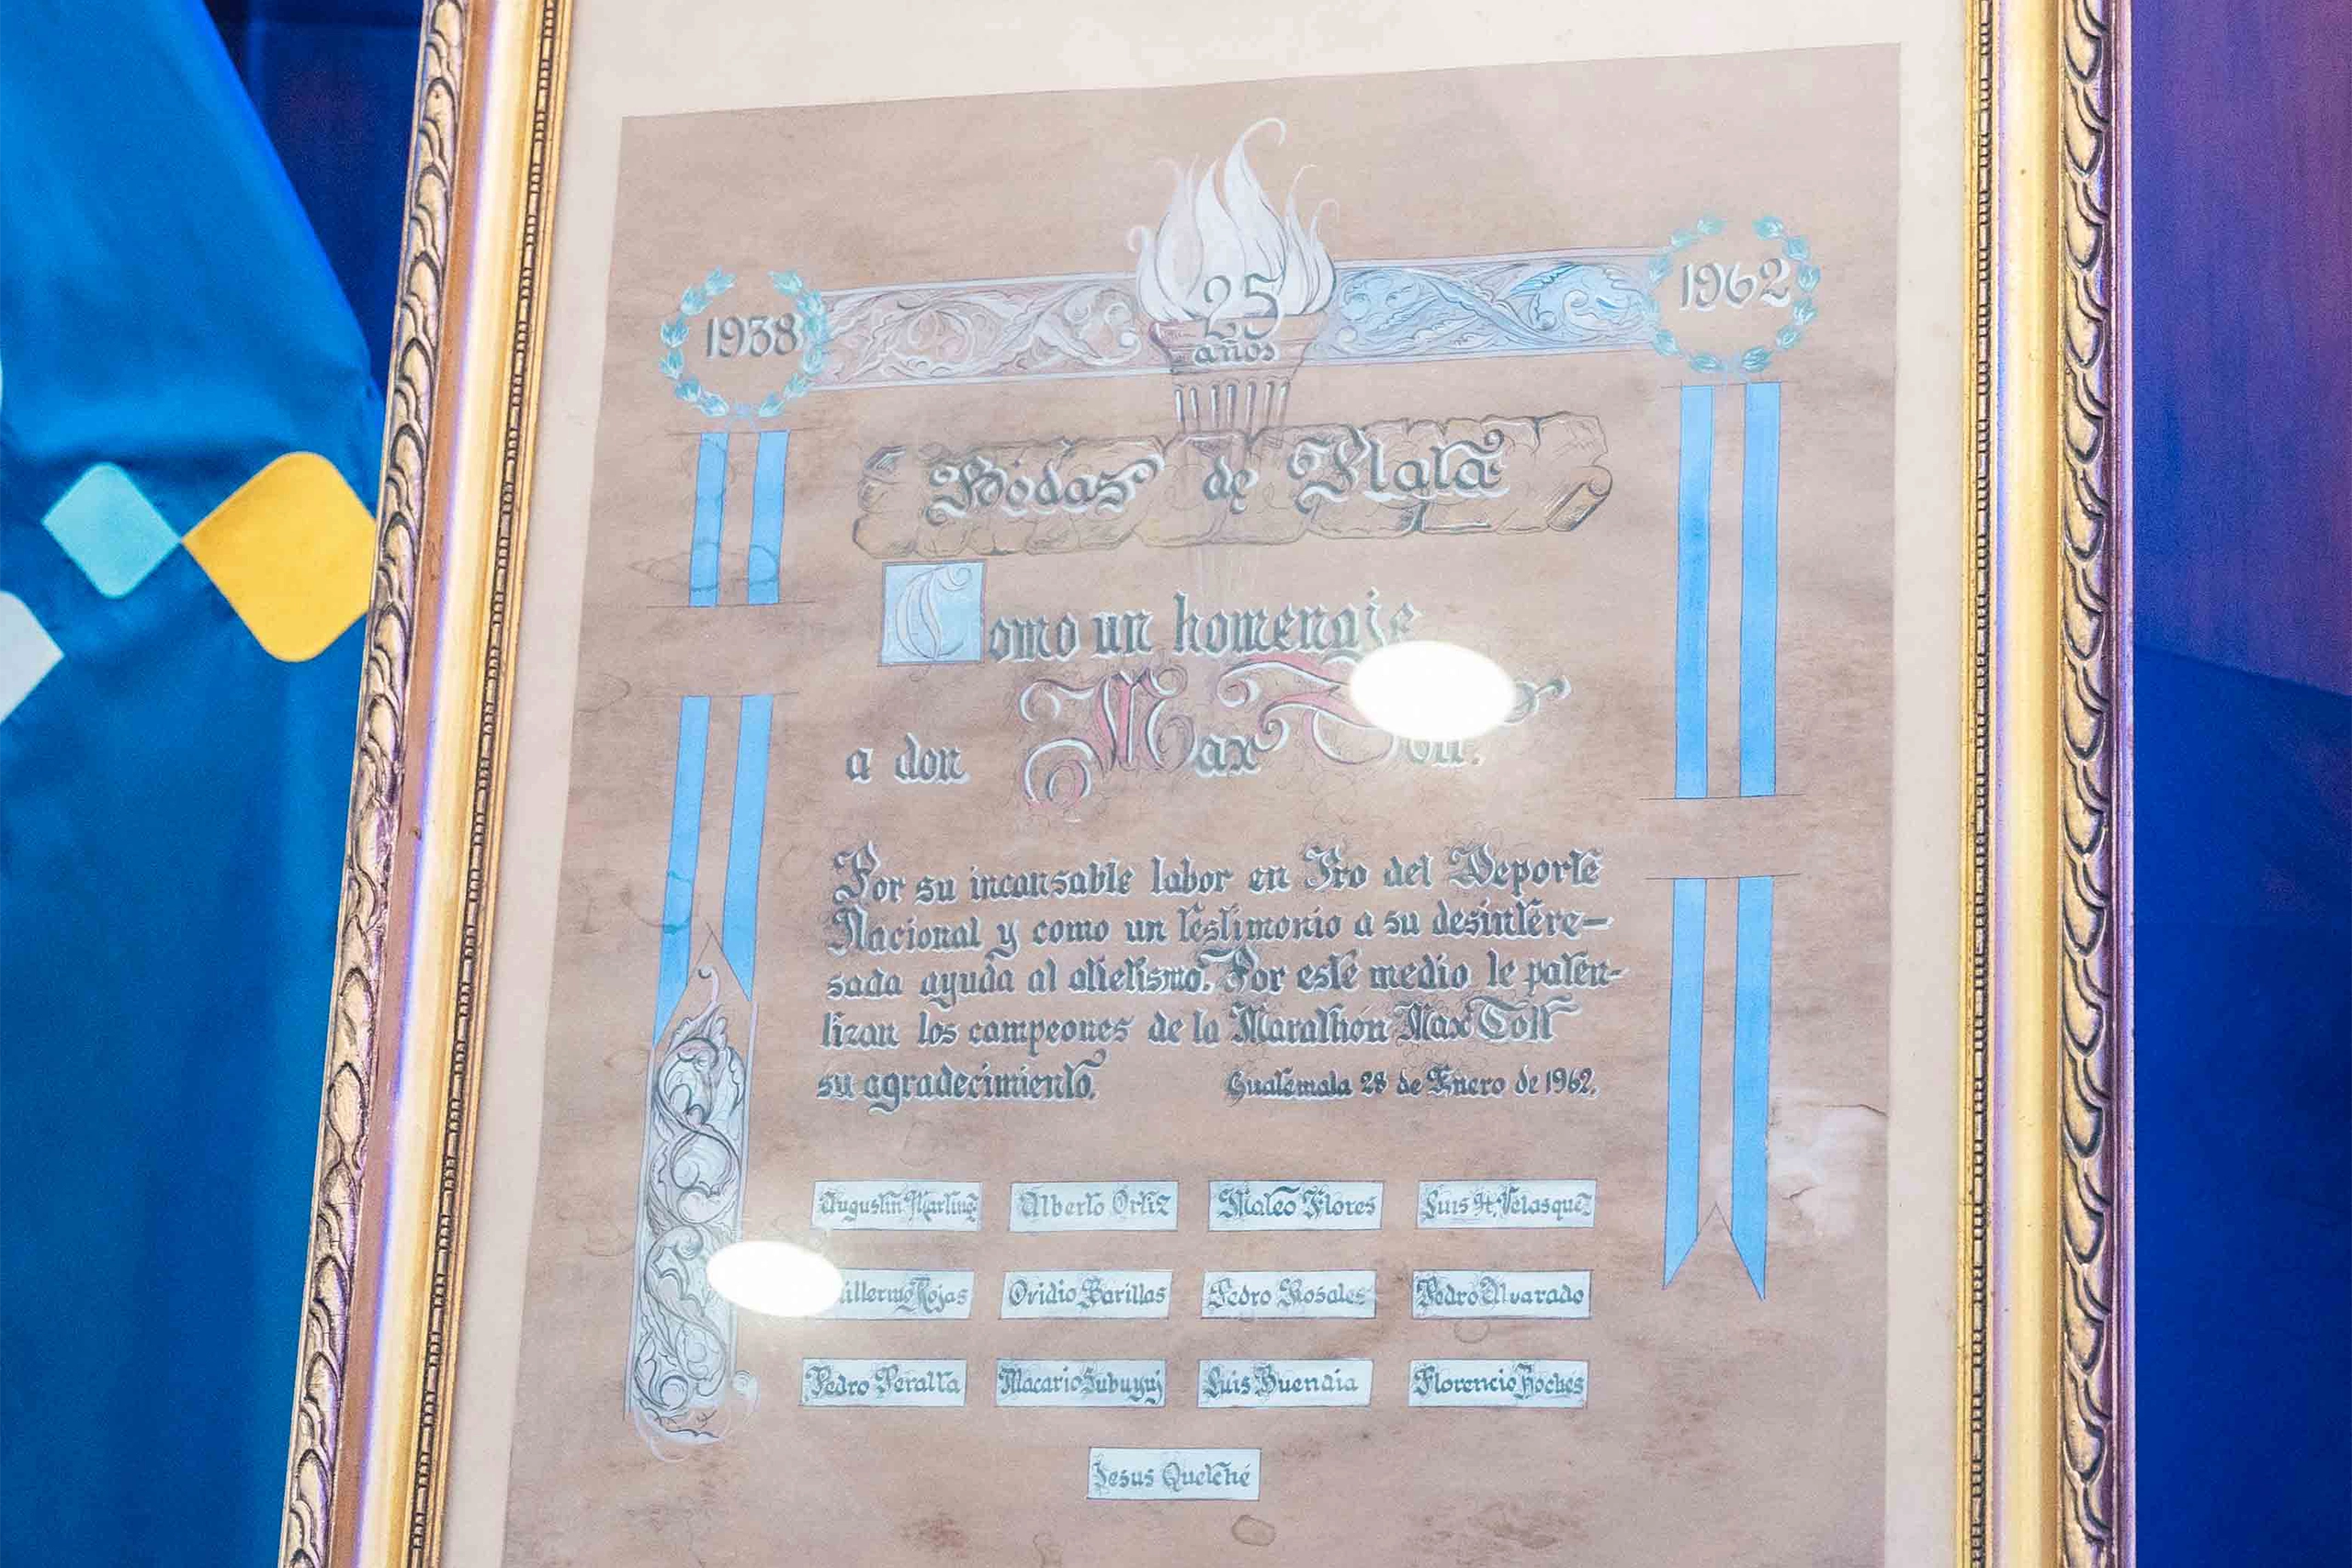 1938
25
años
1962
Bodas de Plata
Como un homenaje
a don Max Toll.
Por su incansable labor en Pro del Deporte
Nacional y como un testimonio a su desintere-
sada ayuda al atletismo. Por este medio le paten-
tizan los campeones de la Marathón Max Toll
su agradecimiento. Guatemala 28 de Enero de 1962.
Augustin Martinez Alberto Ortiz Mateo Flores Luis H. Velasquez
Rojas Ovidio Barillas Pedro Rosales Pedro Alvarado
Pedro Peralta Macario Luis Florencio
Jesus Quelché